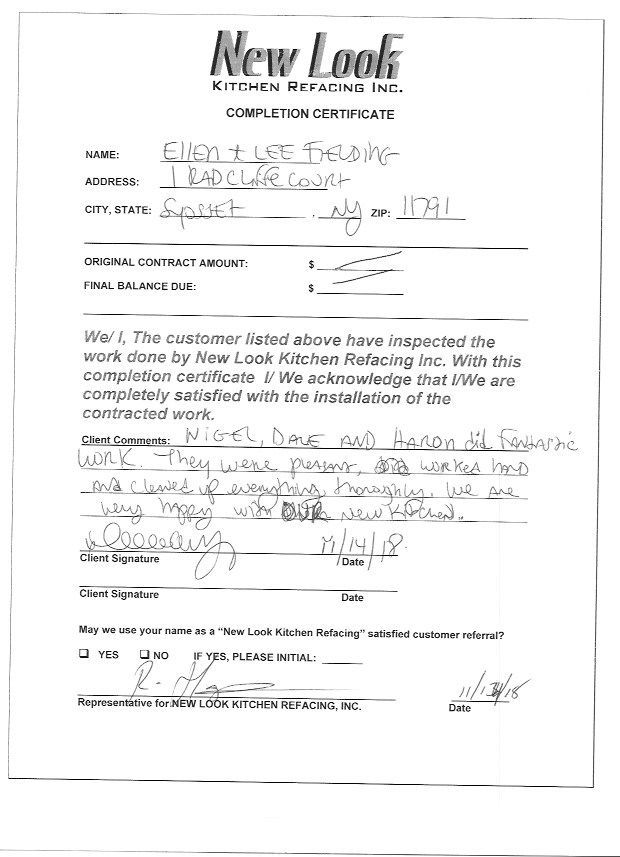 New Look
KITCHEN REFACING INC.
COMPLETION CERTIFICATE
NAME: Ellen + LEE FIELDING
ADDRESS: 1 RADCliffe COURT
CITY, STATE: Syosset, NY ZIP: 11791
ORIGINAL CONTRACT AMOUNT: $
FINAL BALANCE DUE: $
We/ I, The customer listed above have inspected the
work done by New Look Kitchen Refacing Inc. With this
completion certificate I/ We acknowledge that I/We are
completely satisfied with the installation of the
contracted work.
Client Comments: NIGEL, DALE AND HARON did FANTASTIC
WORK. They were pleasant, worked hard
and cleaned up everything thoroghly. We are
very happy with our new kitchen.
11/14/18.
Client Signature Date
Client Signature Date
May we use your name as a “New Look Kitchen Refacing” satisfied customer referral?
YES NO IF YES, PLEASE INITIAL:
11/14/18
Representative for NEW LOOK KITCHEN REFACING, INC. Date